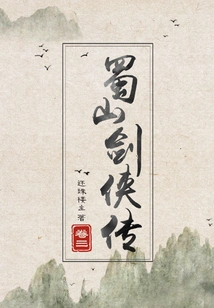 蜀山剑侠传
还珠楼主 著
卷三